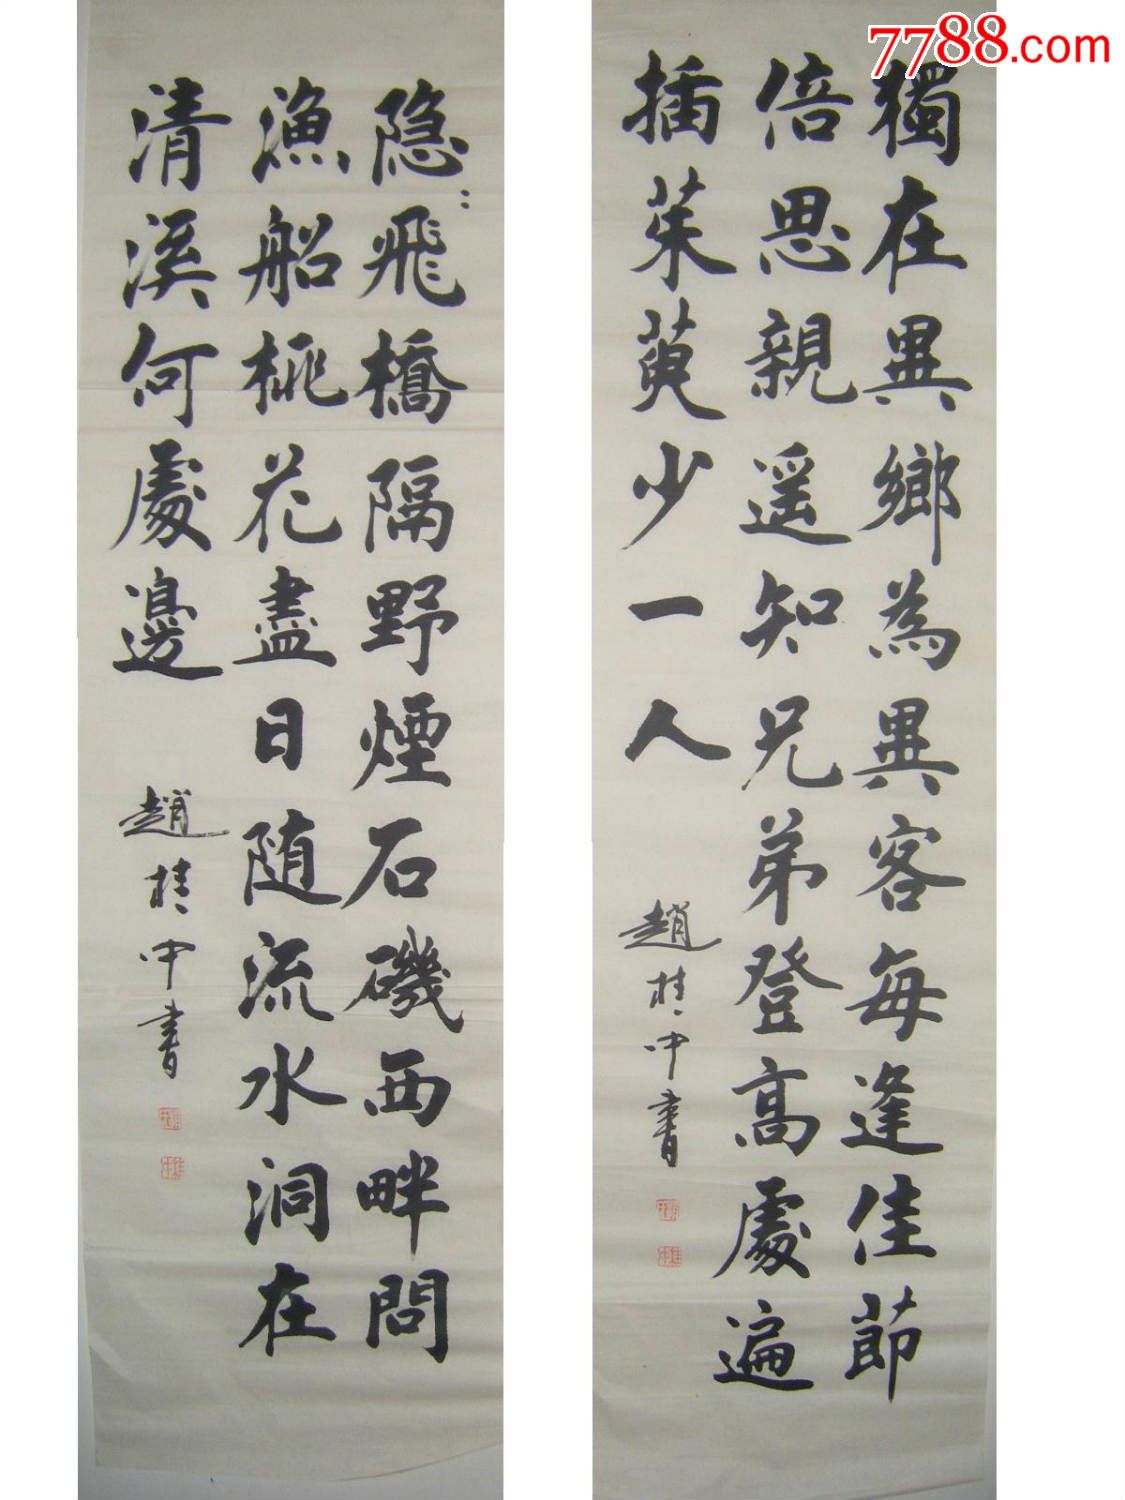 7788.com
獨在異鄉為異客每逢佳節
倍思親遥知兄弟登高處遍
插茱萸少一人
趙桂中書
隐〻飛橋隔野煙石磯西畔問
漁船桃花盡日随流水洞在
清溪何處邊
趙桂中書